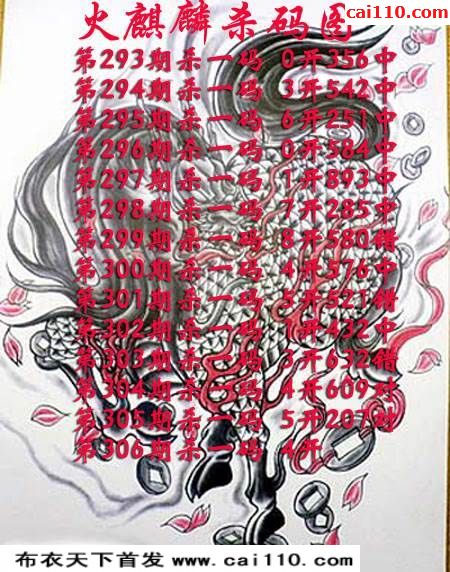 cai110.com
火麒麟杀码图
第293期杀一码 0开356中
第294期杀一码 3开542中
第295期杀一码 6开251中
第296期杀一码 0开584中
第297期杀一码 1开893中
第298期杀一码 7开285中
第299期杀一码 8开580错
第300期杀一码 4开576中
第301期杀一码 5开521错
第302期杀一码 1开432中
第303期杀一码 3开632错
第304期杀一码 4开609对
第305期杀一码 5开207对
第306期杀一码 4开
布衣天下首发 www.cai110.com